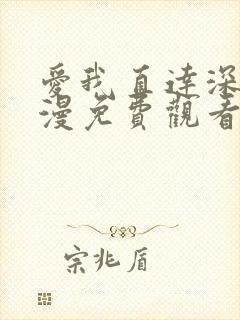 愛我直達深
漫免費觀看
宗兆盾